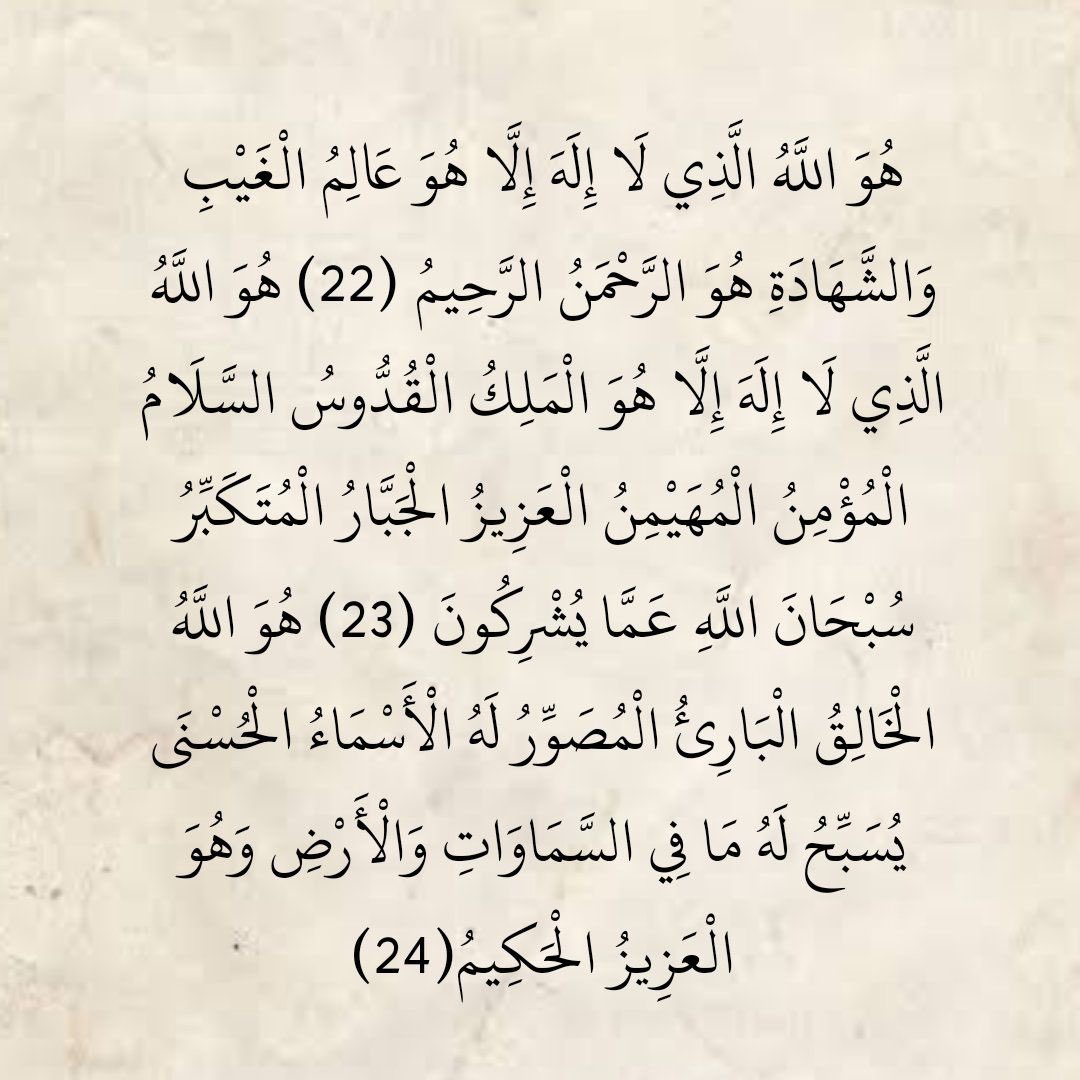 هُوَ اللَّهُ الَّذِي لَا إِلَهَ إِلَّا هُوَ عَالِمُ الْغَيْبِ
وَالشَّهَادَةِ هُوَ الرَّحْمَنُ الرَّحِيمُ (22) هُوَ اللَّهُ
الَّذِي لَا إِلَهَ إِلَّا هُوَ الْمَلِكُ الْقُدُّوسُ السَّلَامُ
الْمُؤْمِنُ الْمُهَيْمِنُ الْعَزِيزُ الْجَبَّارُ الْمُتَكَبِّرُ
سُبْحَانَ اللَّهِ عَمَّا يُشْرِكُونَ (23) هُوَ اللَّهُ
الْخَالِقُ الْبَارِئُ الْمُصَوِّرُ لَهُ الْأَسْمَاءُ الْحُسْنَى
يُسَبِّحُ لَهُ مَا فِي السَّمَاوَاتِ وَالْأَرْضِ وَهُوَ
الْعَزِيزُ الْحَكِيمُ(24)